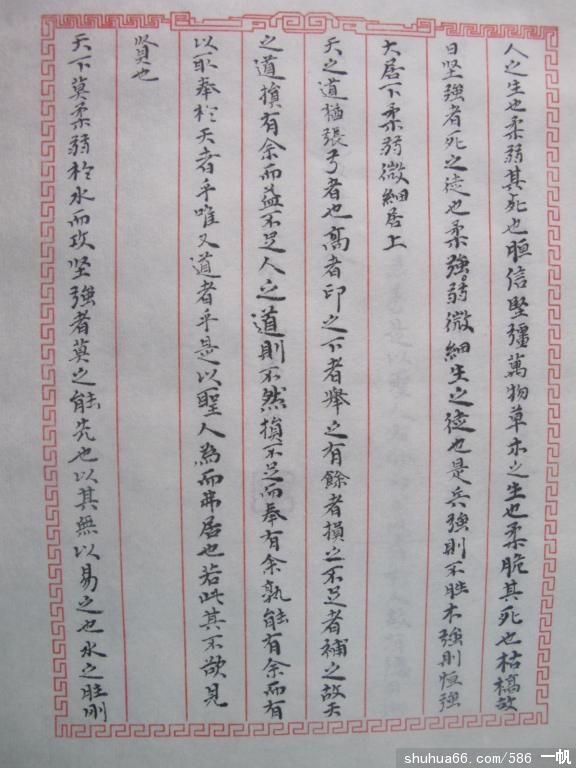 人之生也柔弱其死也䐵信堅彊萬物草木之生也柔脆其死也枯槁故
曰坚強者死之徒也柔強弱微細生之徒也是兵強則不胜木強則恒強
大居下柔弱微細居上
天之道猶張弓者也高者印之下者舉之有餘者損之不足者補之故天
之道損有余而益不足人之道則不然損不足而奉有余孰能有余而有
以取奉於天者乎唯又道者乎是以聖人為而弗居也若此其不欲見
賢也
天下莫柔弱於水而攻坚強者莫之能先也以其無以易之也水之胜刚
shuhua66.com/586 一帆